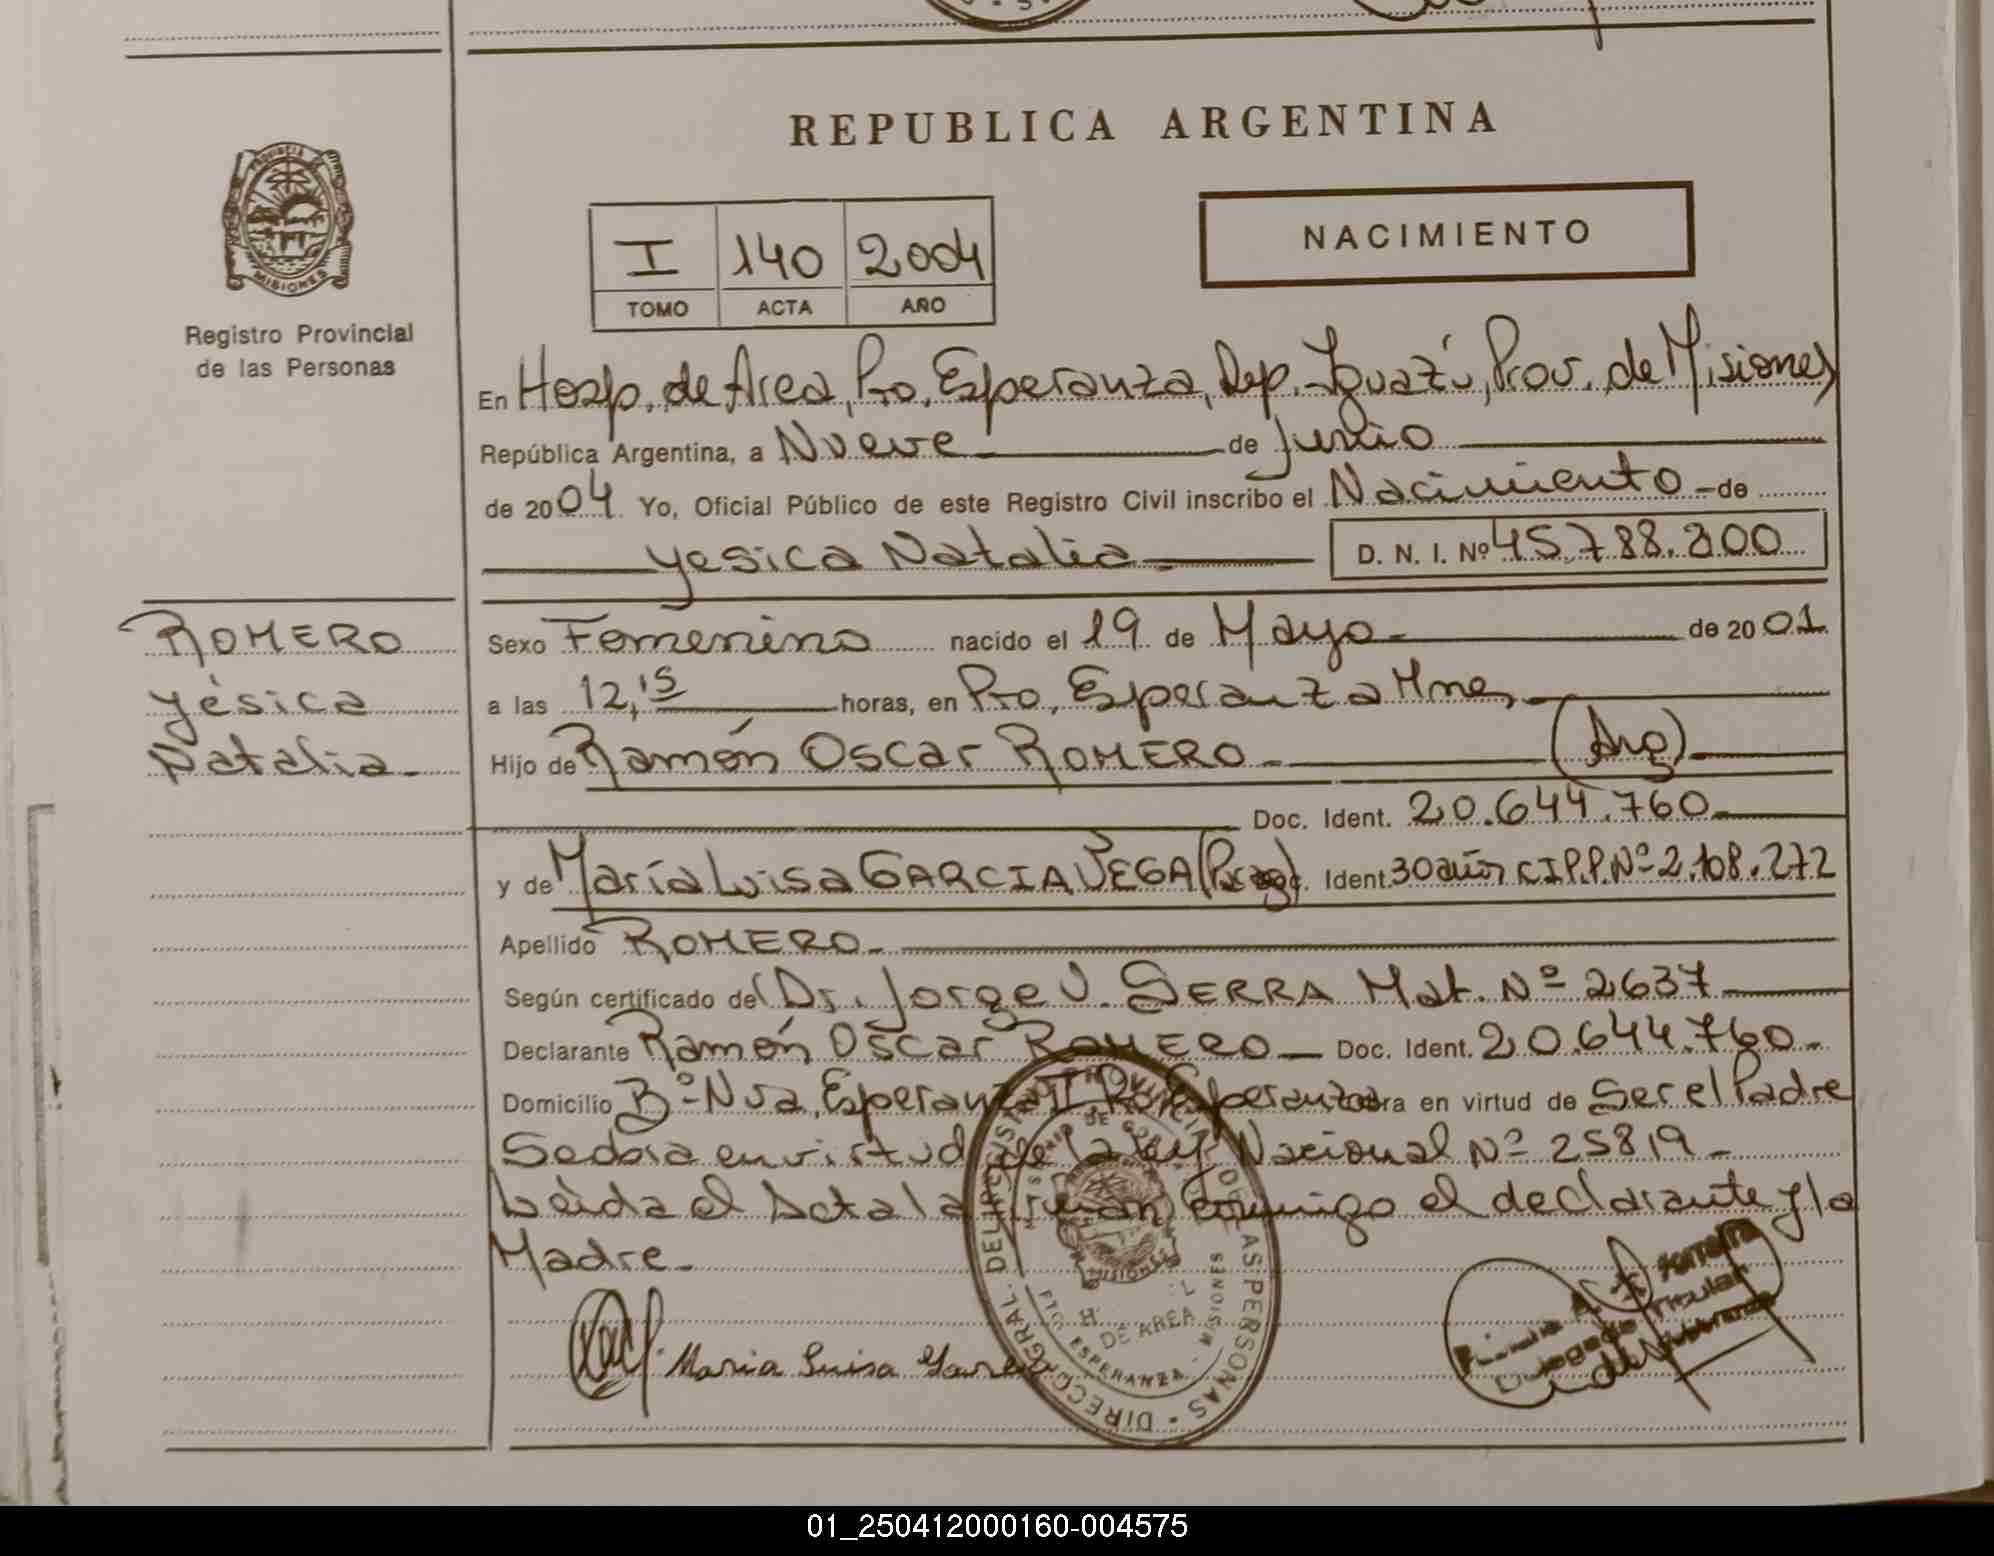 REPUBLICA ARGENTINA
NACIMIENTO
I 140 2004
TOMO ACTA AÑO
PROVINCIA DE
MISIONES
Registro Provincial
de las Personas
En Hosp. de Area, Pto. Esperanza, Dep. Iguazú, Prov. de Misiones
República Argentina, a Nueve de Junio
de 2004 Yo, Oficial Público de este Registro Civil inscribo el Nacimiento - de
Yesica Natalia D. N. I. Nº 45.788.200
ROMERO
Yésica
Natalia
Sexo Femenino nacido el 19 de Mayo de 2001
a las 12,15 horas, en Pto. Esperanza Mnes
Hijo de Ramón Oscar ROMERO (Arg)
Doc. Ident. 20.644.760
y de María Luisa GARCIA VEGA Ident. 30 años C.I.P.P. Nº 2.108.272
Apellido ROMERO
Según certificado de Dr. Jorge V. SERRA Mat. Nº 2637
Declarante Ramón Oscar ROMERO Doc. Ident. 20.644.760
Domicilio Bº Nva. Esperanza II Pto. Esperanza obra en virtud de Ser el Padre
Se obra en virtud de la Ley Nacional Nº 25819
Leída el Acta la firman conmigo el declarante y la
Madre
Maria Luisa
DIRECC. GRAL. DEL REGISTRO PROVINCIAL DE LAS PERSONAS
MISIONES
DE AREA
PTO. ESPERANZA - MISIONES
Titular
01_250412000160-004575